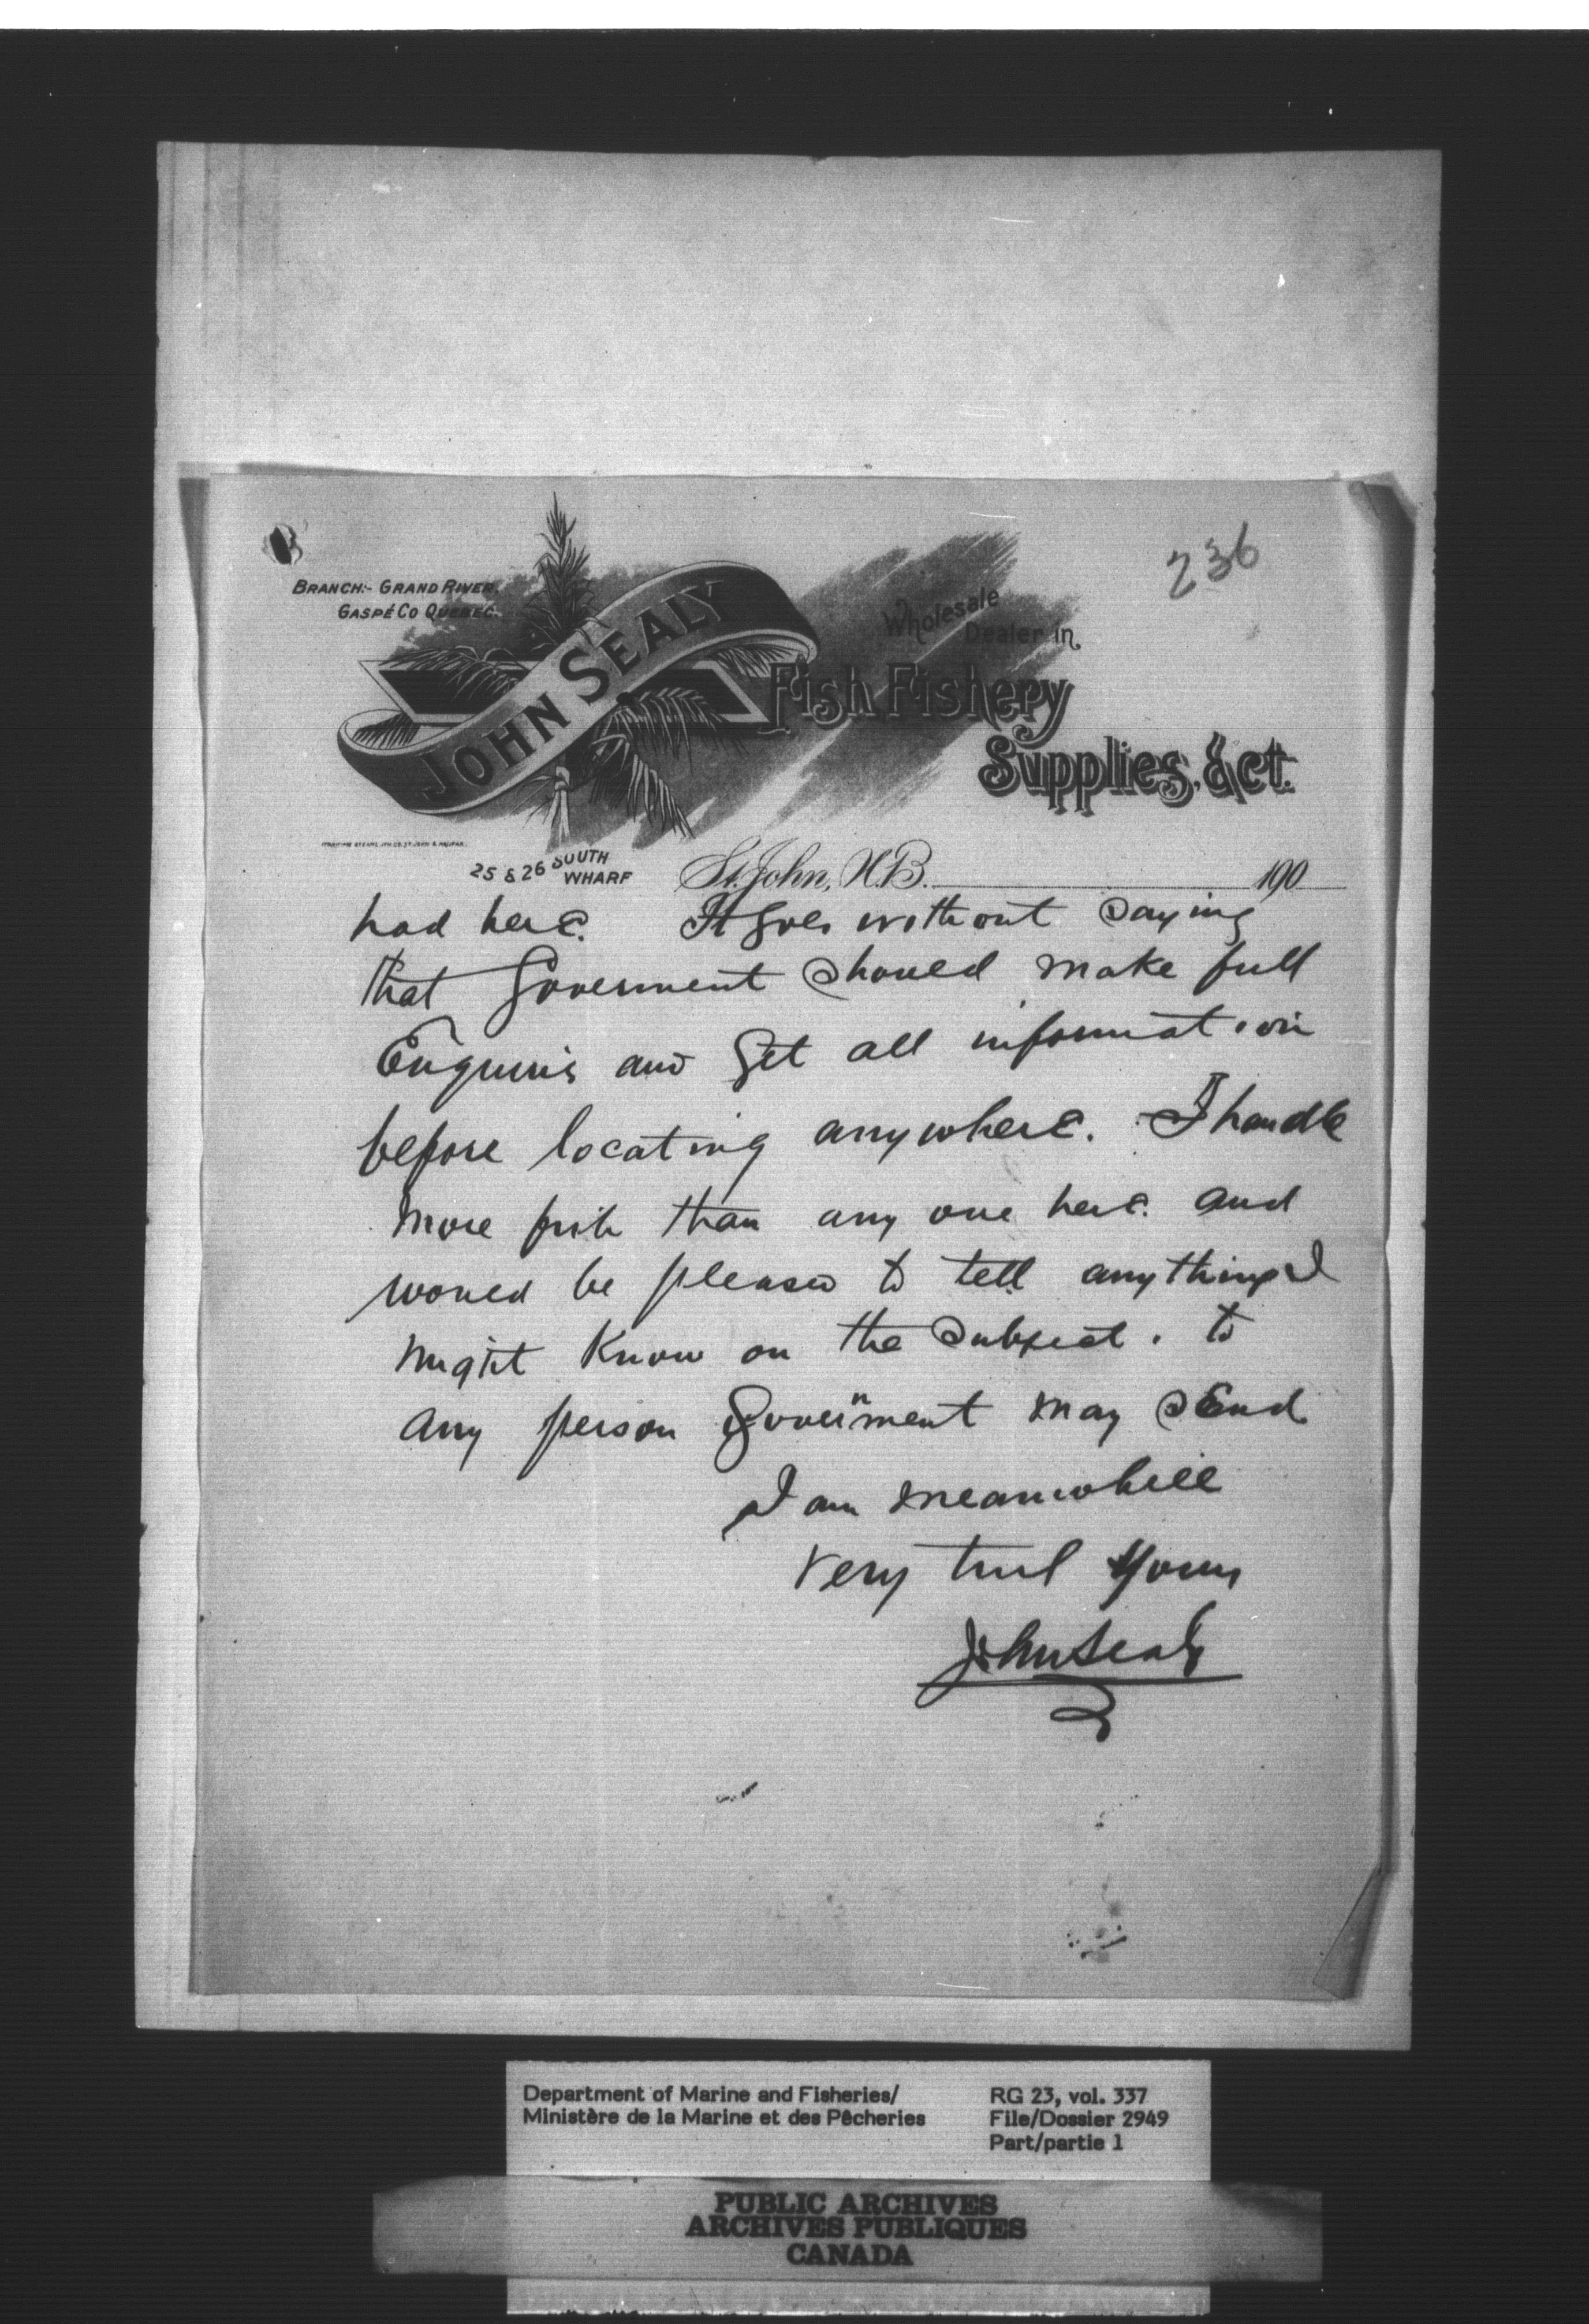 236
BRANCH:- GRAND RIVER.
GASPÉ CO QUEBEC.
JOHN SEALY
Wholesale
Dealer in
Fish Fishery
Supplies, &ct.
MARITIME STEAM LITH. CO. ST. JOHN & HALIFAX.
25 & 26 SOUTH WHARF
St. John, N.B. 190
had here. It goes without saying
that Goverment should make full
Enquiris and get all information
before locating anywhere. I handle
more fish than any one here. and
would be pleased to tell anything I
might know on the subject. to
any person Government may send
I am meanwhile
very trul yours
John Sealy
Department of Marine and Fisheries/
Ministère de la Marine et des Pêcheries
RG 23, vol. 337
File/Dossier 2949
Part/partie 1
PUBLIC ARCHIVES
ARCHIVES PUBLIQUES
CANADA